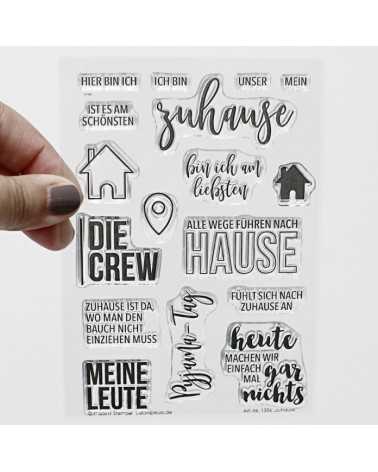 HIER BIN ICH
ICH BIN
UNSER
MEIN
IST ES AM
SCHÖNSTEN
zuhause
bin ich am
liebsten
DIE
CREW
ALLE WEGE FÜHREN NACH
HAUSE
ZUHAUSE IST DA,
WO MAN DEN
BAUCH NICHT
EINZIEHEN MUSS
Pyjama-Tag
FÜHLT SICH NACH
ZUHAUSE AN
heute
MACHEN WIR
EINFACH
MAL
gar
nichts
MEINE
LEUTE